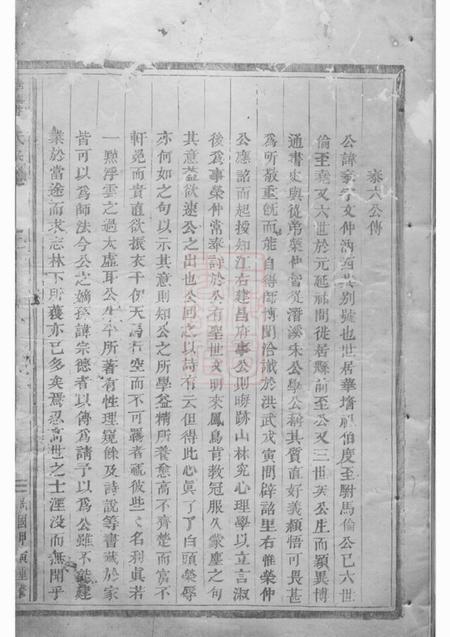 泰六公傳
公諱 字文仲 別號也世居華墻祖伯度至駙馬倫公已六世
倫至 又六世於元延祐間徙居縣前至公又三世矣公生而穎異博
通書史與從弟榮仲嘗從潛溪宋公學公稱其質直好義穎悟可畏甚
為所敬重既而能自得師博聞洽識於洪武戊寅間辟詔里右惟榮仲
公應詔而起授知江右建昌府事公則晦跡山林究心理學以立言淑
後為事榮仲常奉詩於公有聖世文明來鳳鳥肯教冠服久蒙塵之句
其意蓋欲速公之出也公回之以詩有云但得此心真了了白頭榮辱
亦何如之句以示其意則知公之所學益精所養愈高不齊楚而富不
軒冕而貴直欲振衣千仞天為 空而不可羈者視彼些些名利真若
一點浮雲之過太虛耳公生平所著有性理窺餘及詩說等書藏於家
皆可以為師法今公之嫡孫諱宗德者以傳為請予以為公雖不能建
業於當途而求志林下所獲亦已多矣焉忍高世之士湮没而無聞乎
民國甲寅重修